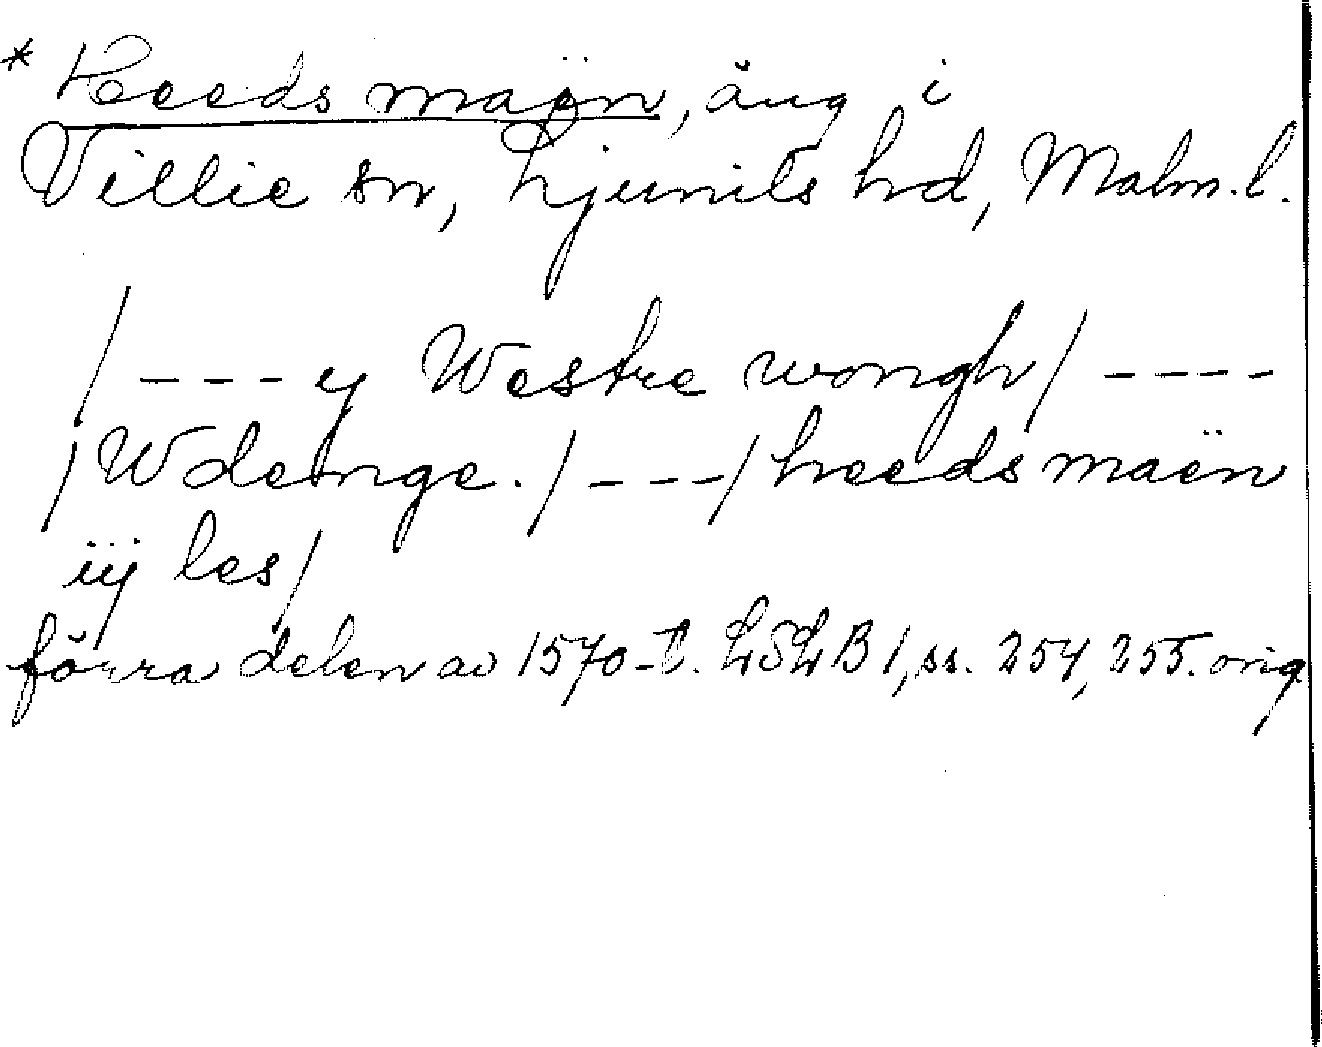 * Heeds maën, äng i
Villie sn, Ljunits hd, Malm. l.
/ - - - y Westre wongh / - - - -
/ W demge. / - - - / heeds maën
iij les /
förra delen av 1570-t. LSLB 1, ss. 254, 255. orig.